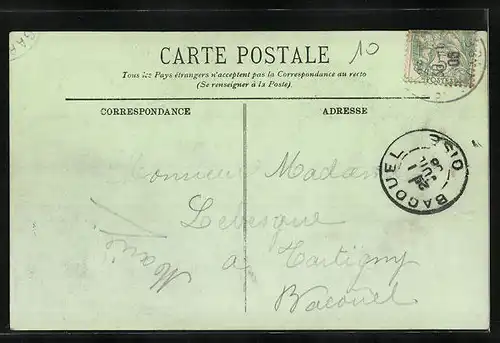 10
CARTE POSTALE
Tous les Pays étrangers n'acceptent pas la Correspondance au recto
(Se renseigner à la Poste).
CORRESPONDANCE
ADRESSE
Monsieur Madame
Lebesgue
à Tartigny
Bacouel
Marie
BACOUEL
OISE
JUIL